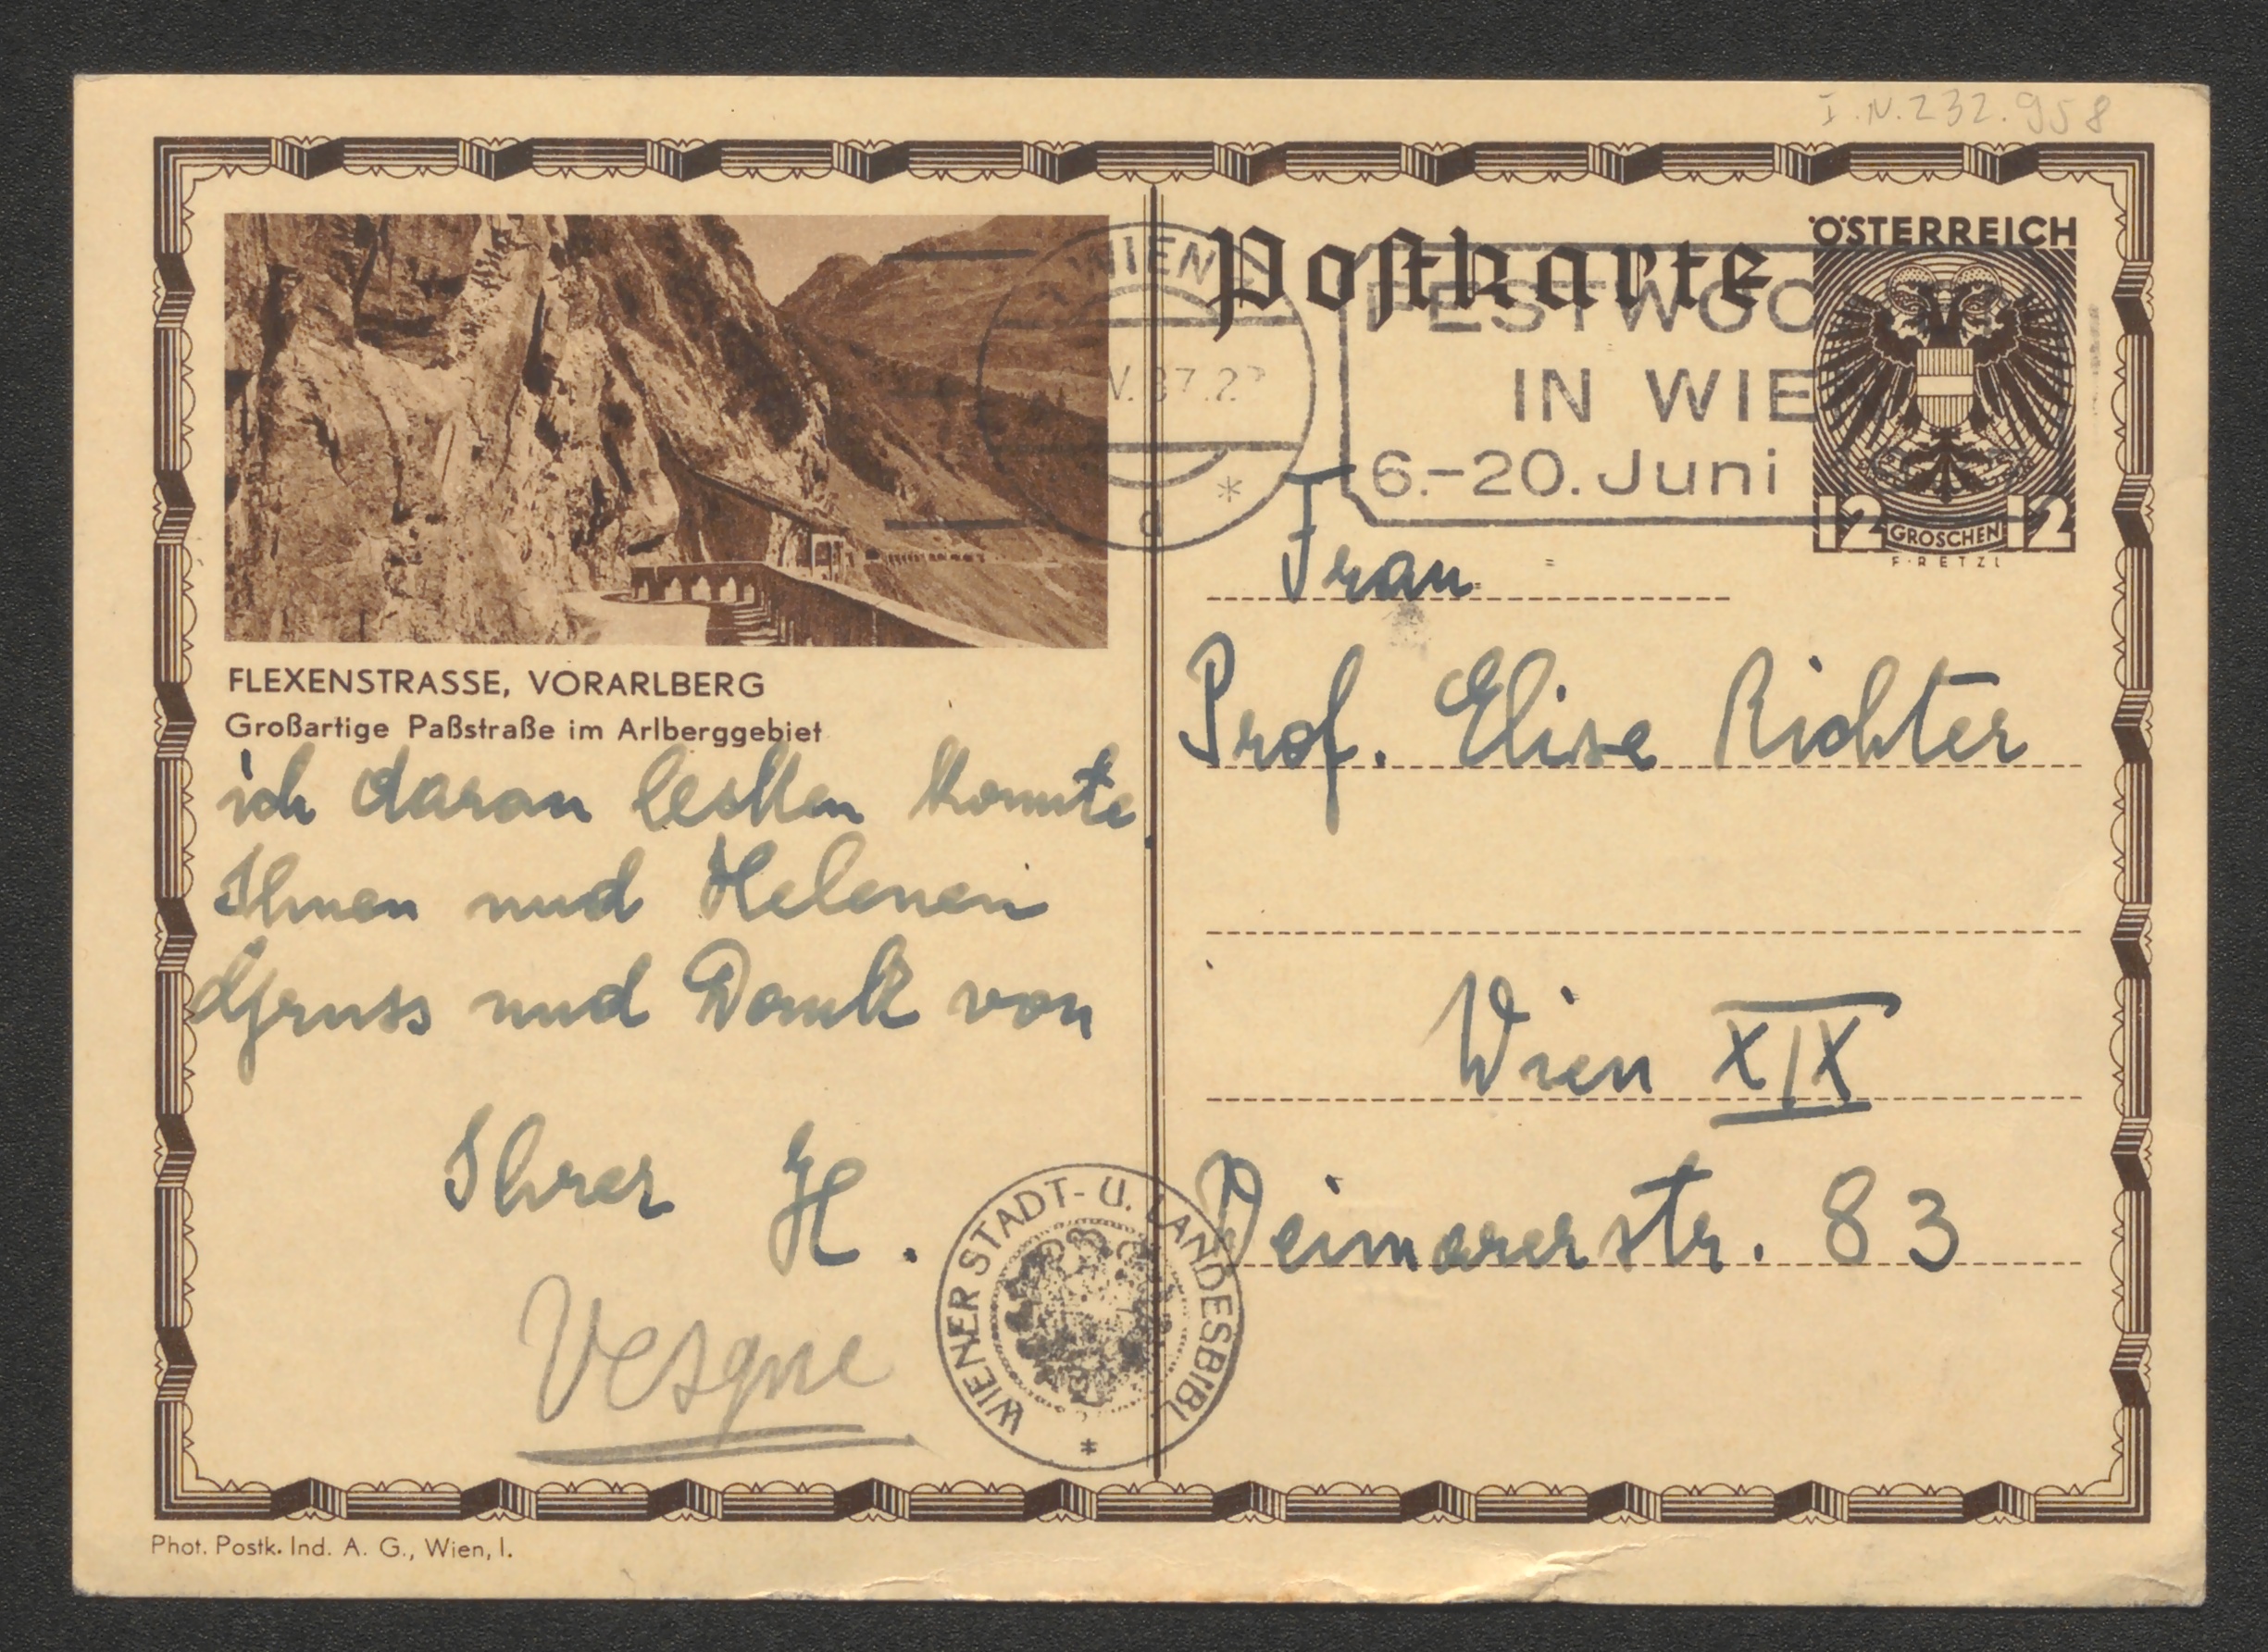 I.N. 232.958
Postkarte
ÖSTERREICH
WIEN
V. 37.2
FESTWOC
IN WIE
6.-20. Juni
12 GROSCHEN 12
F. RETZL
FLEXENSTRASSE, VORARLBERG
Großartige Paßstraße im Arlberggebiet
ich daran
konnte.
Ihnen und Helenen
Gruss und Dank von
Ihrer H.
Vesque
Frau
Prof. Elise Richter
Wien XIX
Weimarerstr. 83
WIENER STADT- U. LANDESBIBL.
Phot. Postk. Ind. A. G., Wien, I.